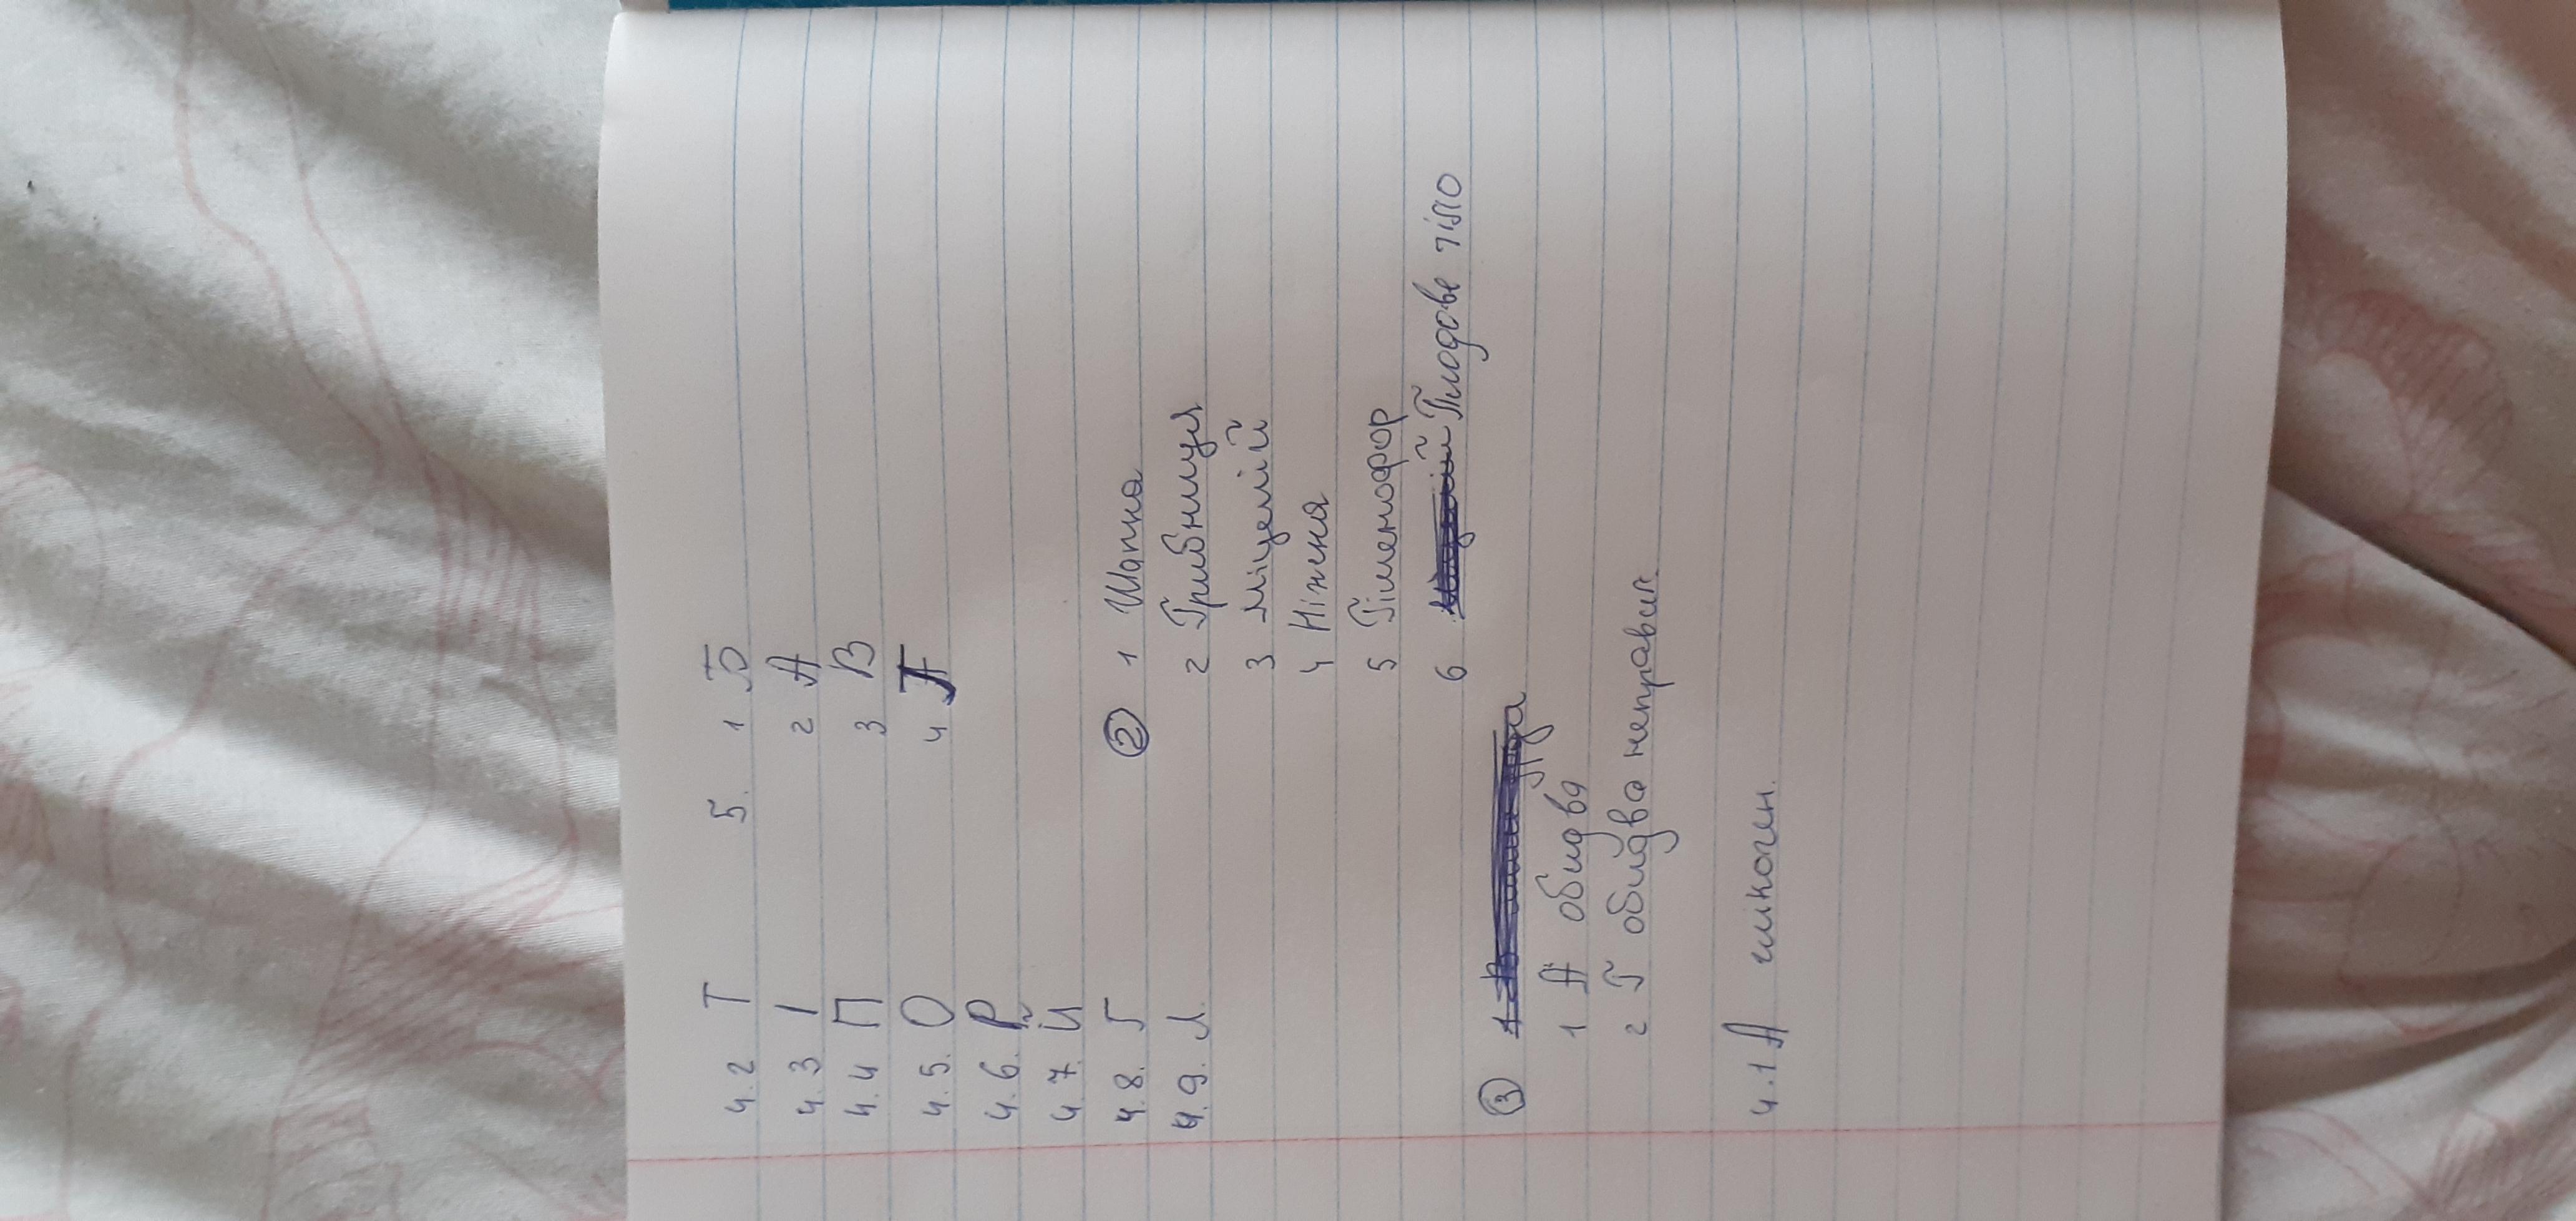 4.2 Т
4.3 І
4.4 П
4.5. О
4.6. Р
4.7. Й
4.8. Г
4.9. Л.
5. 1 Б
2 А
3 В
4
② 1 Шапка
2 Грибниця
3 міцелій
4 Ніжка
5 Гіменофор
6 Плодове тіло
③
1 А обидва
2 Г обидва неправил.
4.1 А глікоген.